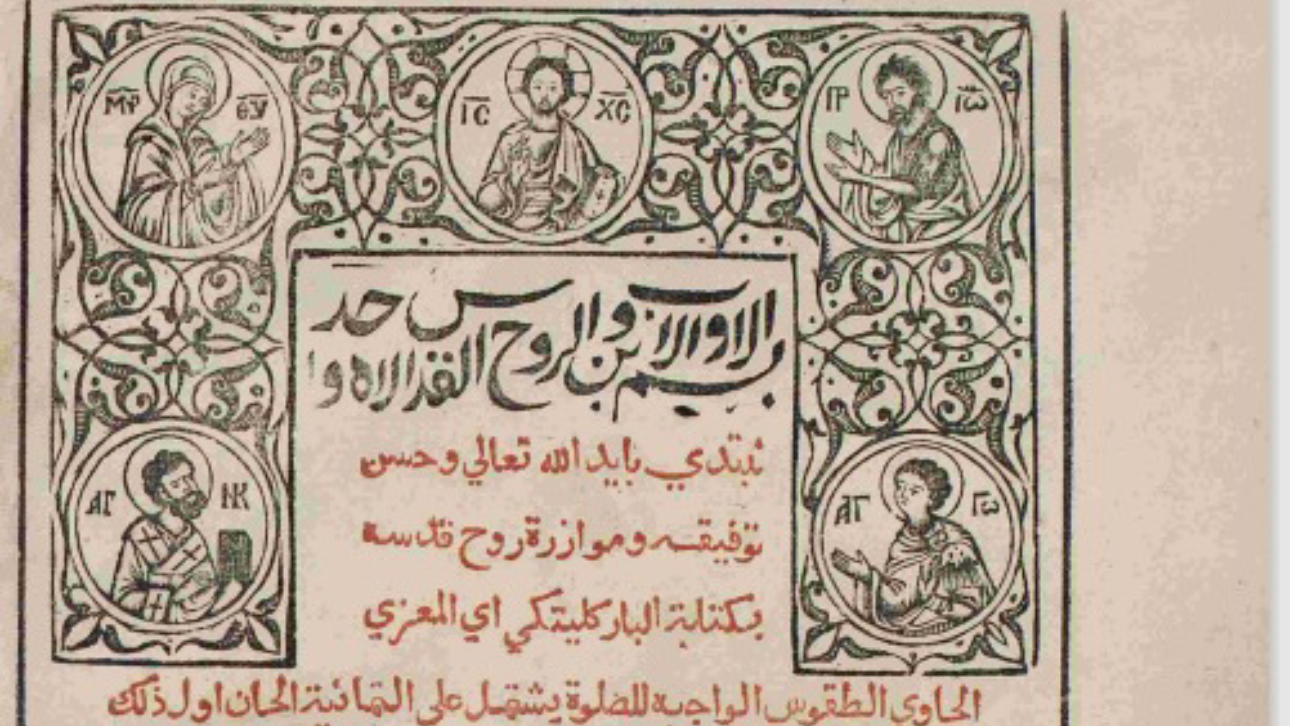 ΜΡ ΘΥ
ΙС ΧС
ΠΡ ΙѠ
بسم الاب والابن والروح القدس الاله واحد
ΑΓ ΝΚ
ΑΓ ΓѠ
نبتدي بايد الله تعالي وحسن
توفيقه وموازرة روح قدسه
بكتابة الباركليتكي اي المعزي
الحاوي الطقوس الواجبه للصلوة يشتمل علي الثمانية الحان اول ذلك